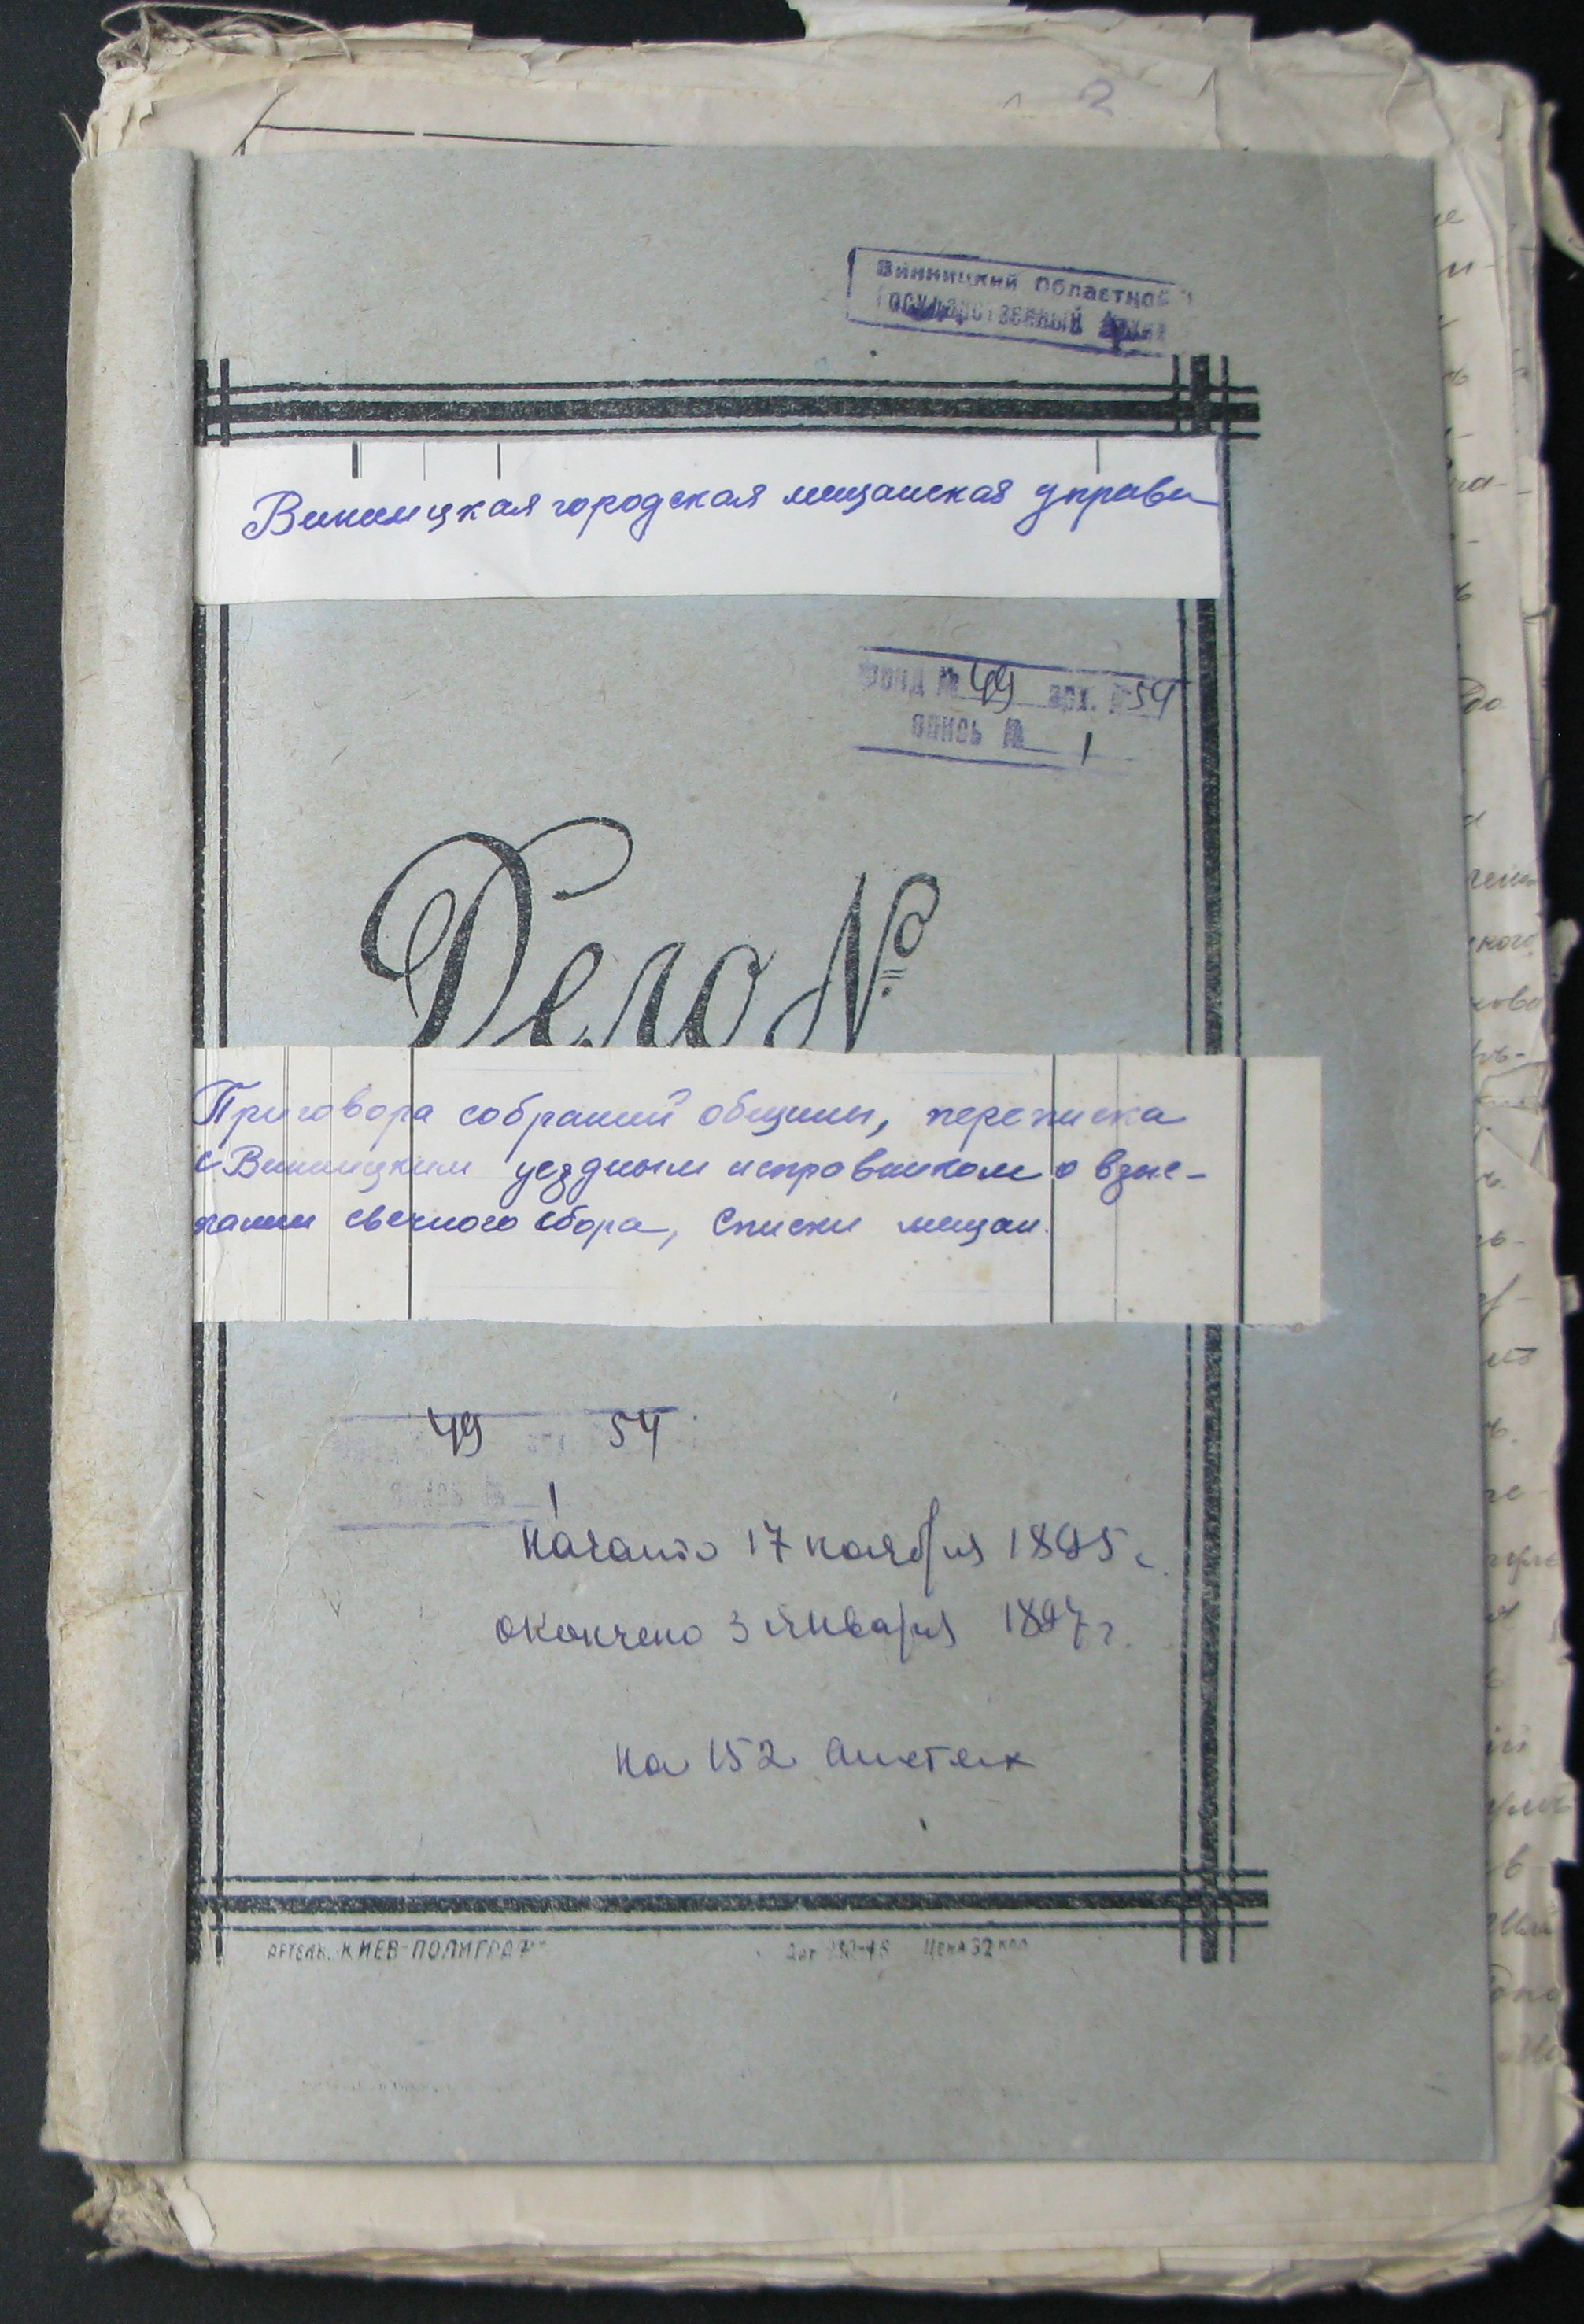 2
Винницкий Областной
Государственный Архив
Винницкая городская мещанская управа
фонд № 49 арх. № 54
опись № 1
Дело №
Приговора собраний общины, переписка
с Винницким уездным исправником о взыс-
кании свечного сбора, Списки мещан.
49 арх. 54
опись № 1
Начато 17 ноября 1895 г.
окончено 3 января 1897 г.
на 152 листах
АРТЕЛЬ "КИЕВ-ПОЛИГРАФ" Цена 32 коп